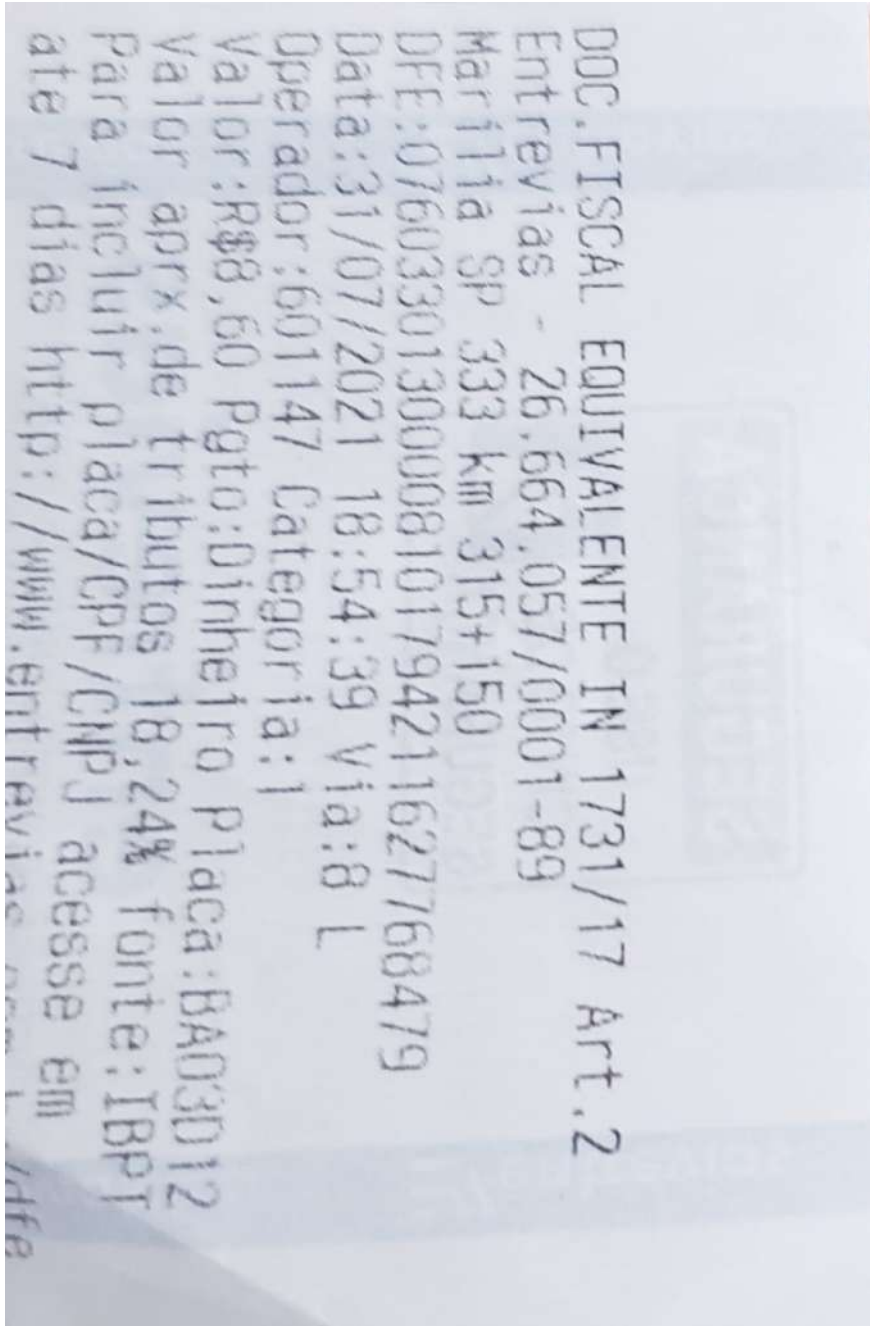 DOC.FISCAL EQUIVALENTE IN 1731/17 Art.2
Entrevias - 26.664.057/0001-89
Marilia SP 333 km 315+150
DFE:0760330130000810179421162776 8479
Data:31/07/2021 18:54:39 Via:8 L
Operador:601147 Categoria:1
Valor:R$8,60 Pgto:Dinheiro Placa:BAO3D12
Valor aprx.de tributos 18,24% fonte:IBPT
Para incluir placa/CPF/CNPJ acesse em
ate 7 dias http://www.entrevias